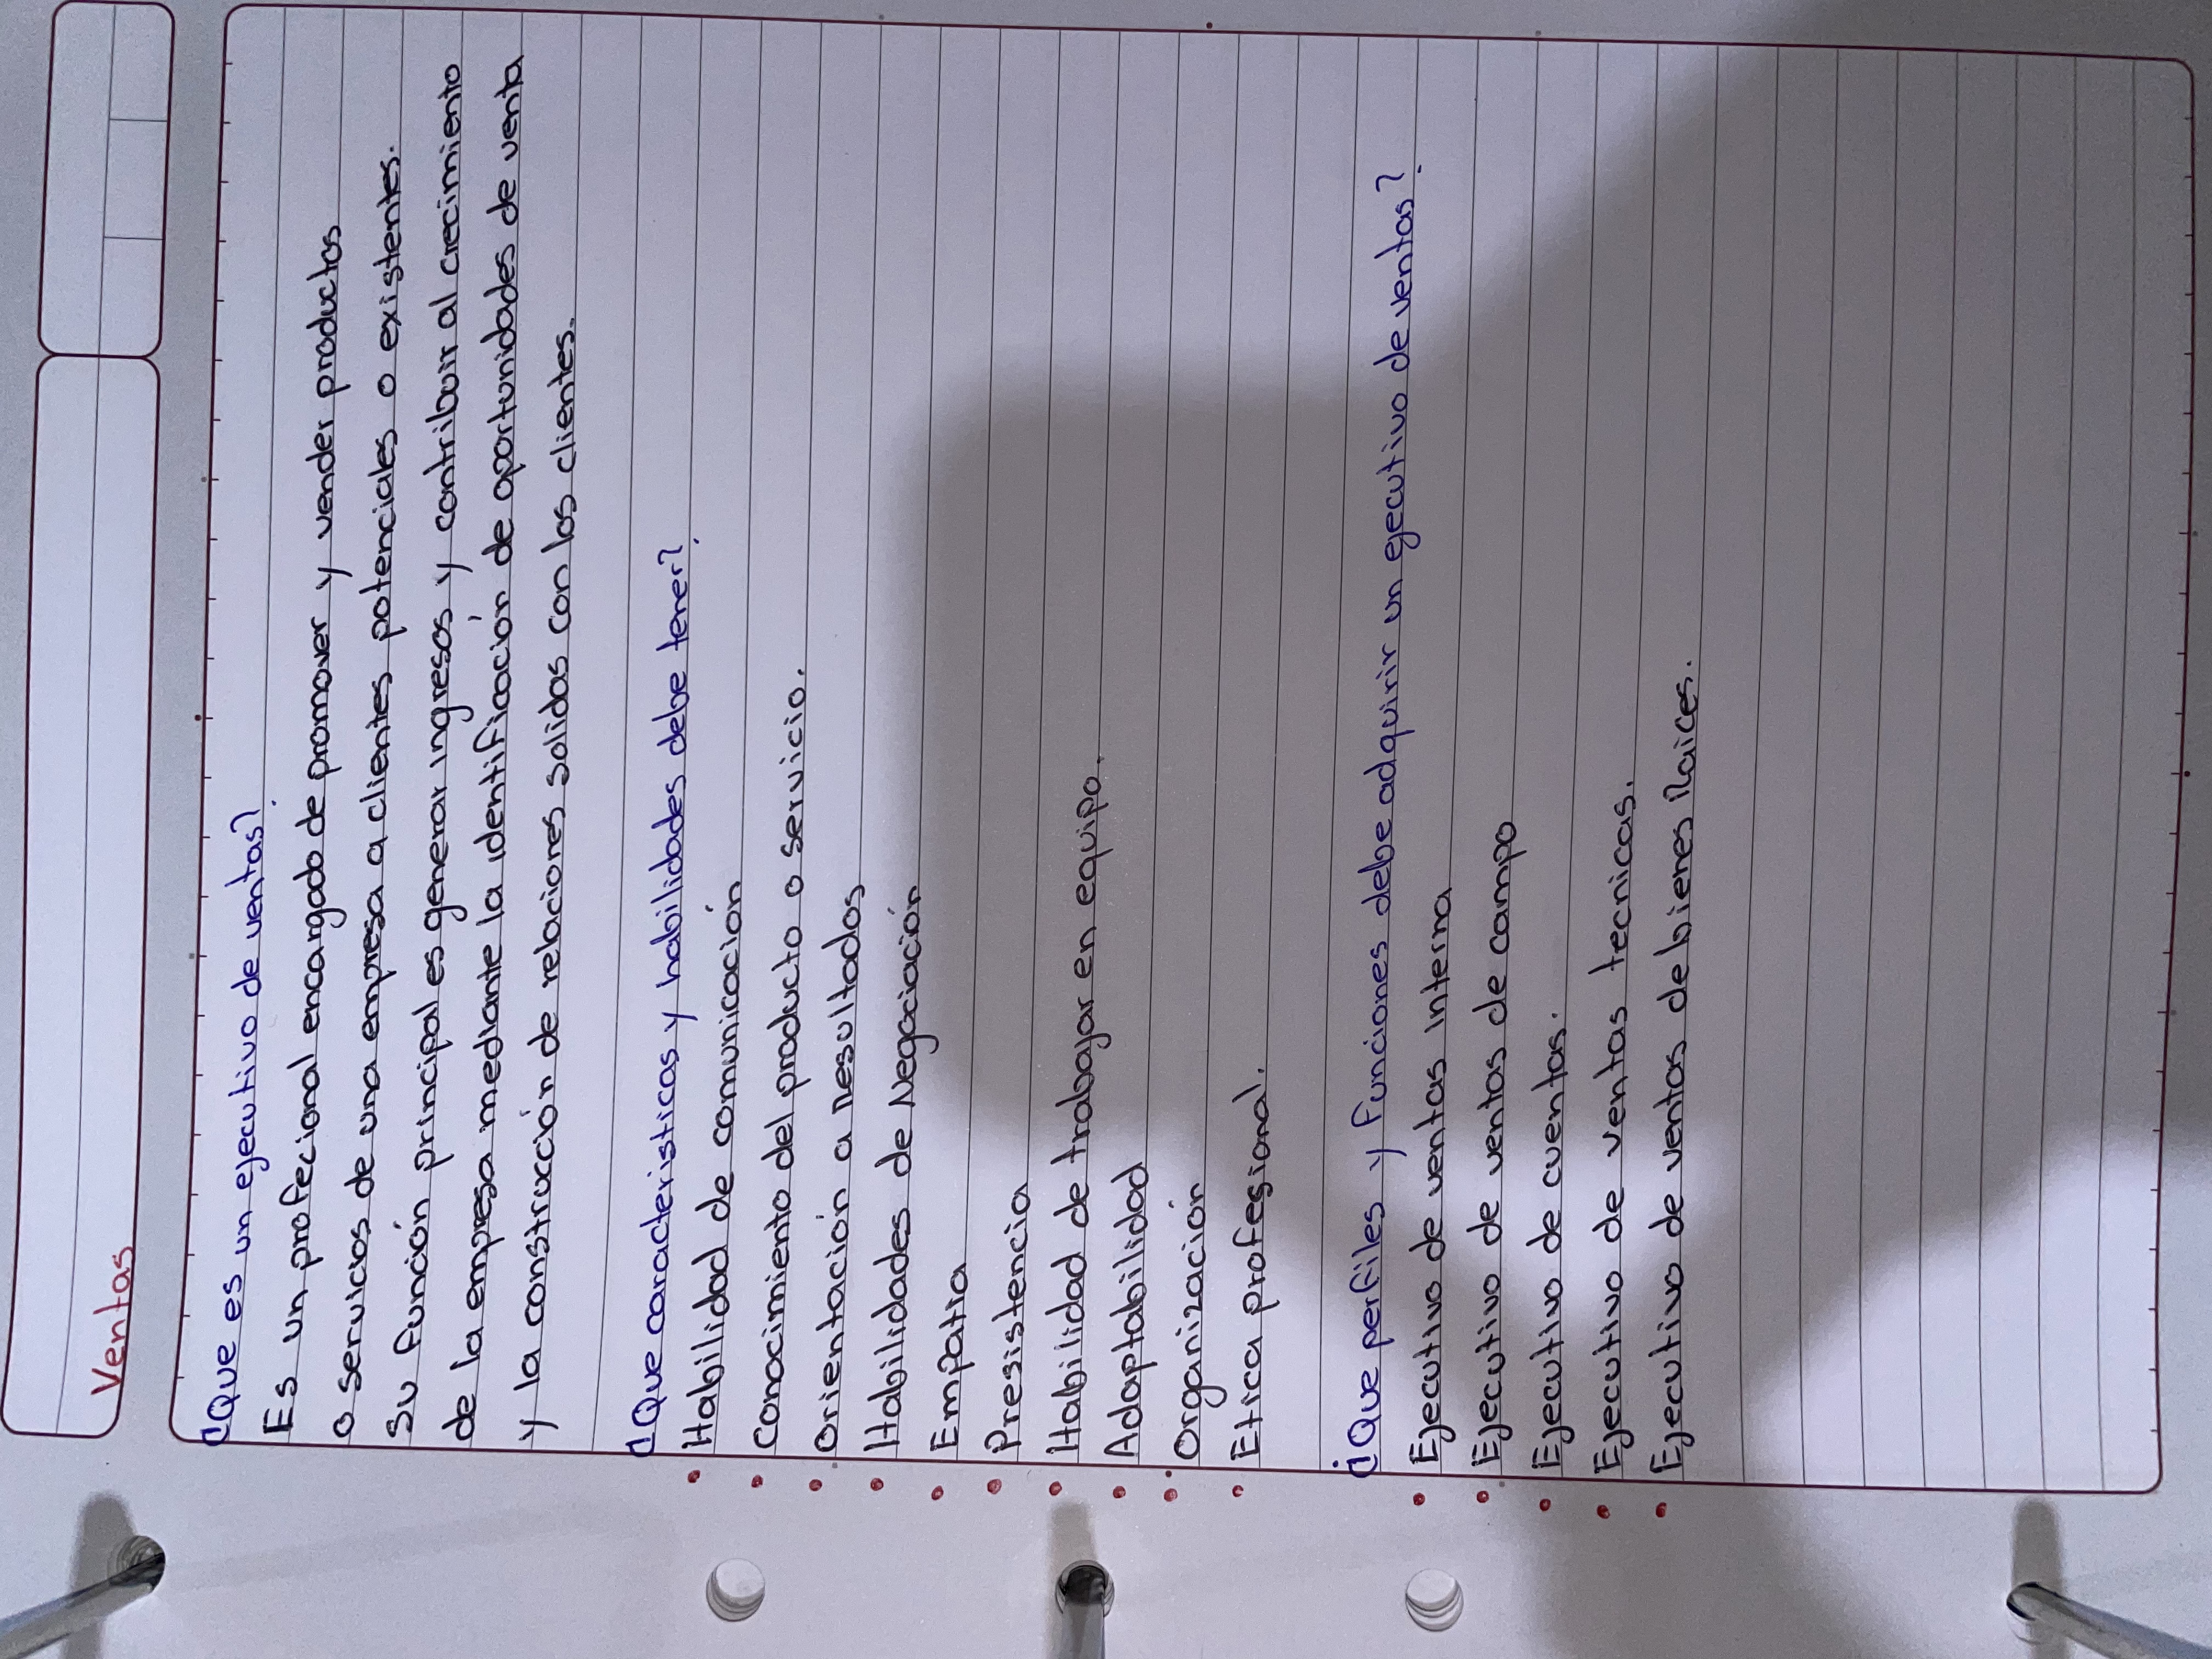 Ventas
¿Que es un ejecutivo de ventas?
Es un profecional encargado de promover y vender productos
o servicios de una empresa a clientes potenciales o existentes.
Su función principal es generar ingresos y contribuir al crecimiento
de la empresa mediante la identificación de oportunidades de venta
y la construcción de relaciones solidas con los clientes.
¿Que caracteristicas y habilidades debe tener?
• Habilidad de comunicación
• Conocimiento del producto o servicio.
• Orientación a Resultados
• Habilidades de Negociación
• Empatia
• Presistencia
• Habilidad de trabajar en equipo.
• Adaptabilidad
• Organización
• Etica profesional.
¿Que perfiles y funciones debe adquirir un ejecutivo de ventas?
• Ejecutivo de ventas interna
• Ejecutivo de ventas de campo
• Ejecutivo de cuentas.
• Ejecutivo de ventas tecnicas.
• Ejecutivo de ventas de bienes Raices.